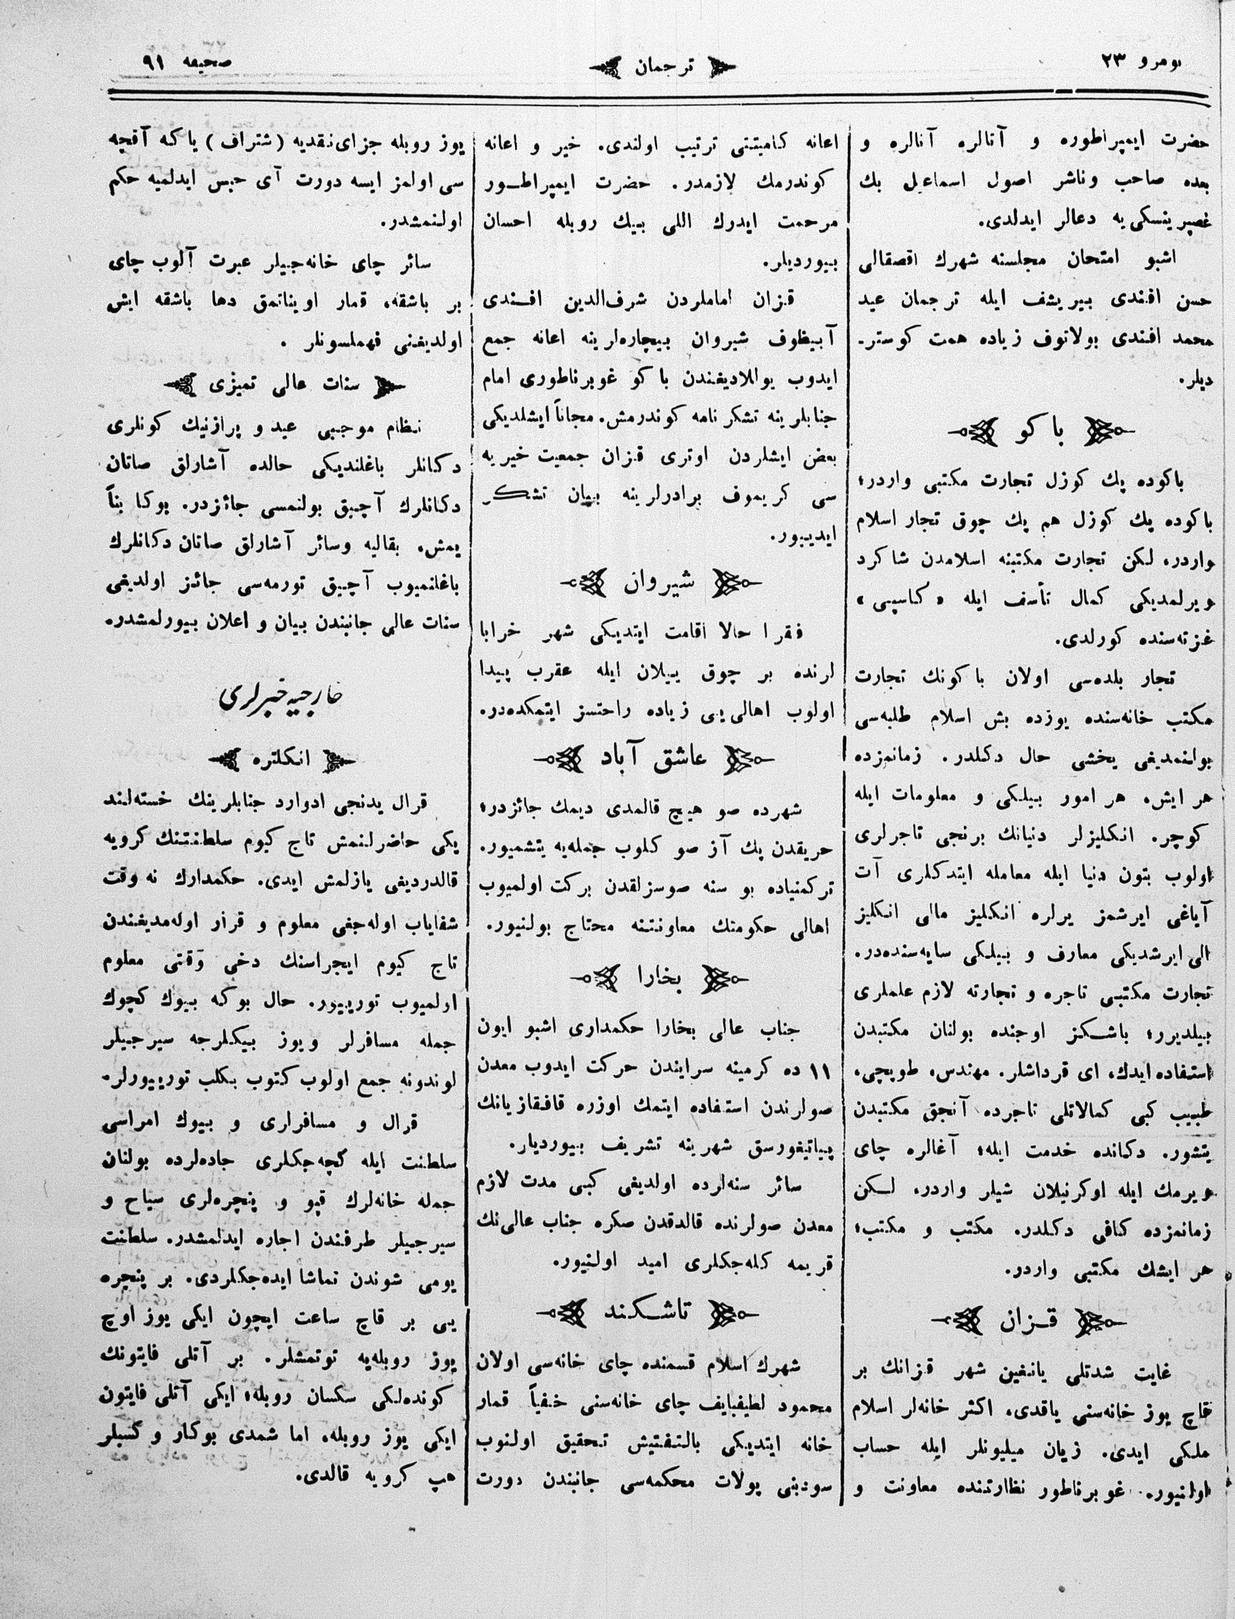 نومرو ۲۳
ترجمان
صحیفه ۹۱
حضرت ایمپراطوره و آتالره آنالره و
بعده صاحب وناشر اصول اسماعیل بك
غصپرینسکی‌یه دعالر ایدلدی.
اشبو امتحان مجلسنه شهرك اقصقالی
حسن افندی بیریشف ایله ترجمان عید
محمد افندی بولاتوف زیاده همت کوستر-
دیلر.
باکو
باکوده پك کوزل تجارت مکتبی واردر؛
باکوده پك کوزل هم پك چوق تجار اسلام
واردر، لکن تجارت مکتبنه اسلامدن شاکرد
ویرلمدیکی کمال تأسف ایله «کاسپی»
غزته‌سنده کورلدی.
تجار بلده‌سی اولان باکونك تجارت
مکتب خانه‌سنده یوزده بش اسلام طلبه‌سی
بولنمدیغی یخشی حال دکلدر. زمانمزده
هر ایش، هر امور بیلکی و معلومات ایله
کوچر. انکلیزلر دنیانك برنجی تاجرلری
اولوب بتون دنیا ایله معامله ایتدکلری آت
آیاغی ایرشمز یرلره انکلیز مالی انکلیز
الی ایرشدیکی معارف و بیلکی سایه‌سنده‌در.
تجارت مکتبی تاجره و تجارته لازم علملری
بیلدیرر؛ باشکز اوجنده بولنان مکتبدن
استفاده ایدك، ای قرداشلر. مهندس، طوپچی،
طبیب کبی کمالاتلی تاجرده آنجق مکتبدن
یتشور. دکانده خدمت ایله؛ آغالره چای
ویرمك ایله اوکرنیلان شیلر واردر، لکن
زمانمزده کافی دکلدر. مکتب و مکتب؛
هر ایشك مکتبی واردر.
قزان
غایت شدتلی یانغین شهر قزانك بر
قاچ یوز خانه‌سنی یاقدی، اکثر خانه‌لر اسلام
ملکی ایدی. زیان میلیونلر ایله حساب
اولنیور. غوبرناطور نظارتنده معاونت و
اعانه کامیتتی ترتیب اولندی. خیر و اعانه
کوندرمك لازمدر. حضرت ایمپراطور
مرحمت ایدرك اللی بیك روبله احسان
بیوردیلر.
قزان اماملردن شرف‌الدین افندی
آبیظوف شیروان بیچاره‌لرینه اعانه جمع
ایدوب یوللادیغندن باکو غوبرناطوری امام
جنابلرینه تشکر نامه کوندرمش. مجاناً ایشلدیکی
بعض ایشلردن اوتری قزان جمعیت خیریه
سی کریموف برادرلرینه بیان تشکر
ایدییور.
شیروان
فقرا حالا اقامت ایتدیکی شهر خرابا
لرنده بر چوق ییلان ایله عقرب پیدا
اولوب اهالی‌یی زیاده راحتسز ایتمکده‌در.
عاشق آباد
شهرده صو هیچ قالمدی دیمك جائزدر؛
حریقدن پك آز صو کلوب جمله‌یه یتشمیور.
ترکمنیاده بو سنه صوسزلقدن برکت اولمیوب
اهالی حکومتك معاونتنه محتاج بولنیور.
بخارا
جناب عالی بخارا حکمداری اشبو ایون
۱۱ ده کرمینه سرایندن حرکت ایدوب معدن
صولرندن استفاده ایتمك اوزره قافقازیانك
پیاتیغورسق شهرینه تشریف بیوردیار.
سائر سنه‌لرده اولدیغی کبی مدت لازم
معدن صولرنده قالدقدن صکره جناب عالی‌نك
قریمه کله‌جکلری امید اولنیور.
تاشکند
شهرك اسلام قسمنده چای خانه‌سی اولان
محمود لطیفبایف چای خانه‌سنی خفیاً قمار
خانه ایتدیکی بالتفتیش تحقیق اولنوب
سودبنی پولات محکمه‌سی جانبندن دورت
یوز روبله جزای‌نقدیه (شتراف) یاکه آقچه
سی اولمز ایسه دورت آی حبس ایدلمیه حکم
اولنمشدر.
سائر چای خانه‌جیلر عبرت آلوب چای
بر باشقه، قمار اویناتمق دها باشقه ایش
اولدیغنی فهملسونلر .
سنات عالی تمیزی
نظام موجبی عید و پرازنیك کونلری
دکانلر باغلندیکی حالده آشارلق صاتان
دکانلرك آچیق بولنمسی جائزدر. بوکا بناً
یمش، بقالیه وسائر آشارلق صاتان دکانلرك
باغلنمیوب آچیق تورمه‌سی جائز اولدیغی
سنات عالی جانبندن بیان و اعلان بیورلمشدر.
خارجیه خبرلری
انکلتره
قرال یدنجی ادوارد جنابلرینك خسته‌لند
یکی حاضرلنمش تاج کیوم سلطنتنك کرویه
قالدردیغی یازلمش ایدی. حکمدارك نه وقت
شفایاب اوله‌جغی معلوم و قرار اوله‌مدیغندن
تاج کیوم ایجراسنك دخی وقتی معلوم
اولمیوب توریییور. حال بوکه بیوك کچوك
جمله مسافرلر ویوز بیکلرجه سیرجیلر
لوندونه جمع اولوب کتوب بکلب تورییورلر.
قرال و مسافراری و بیوك امراسی
سلطنت ایله کچه‌جکلری جاده‌لرده بولنان
جمله خانه‌لرك قپو و پنچره‌لری سیاح و
سیرجیلر طرفندن اجاره ایدلمشدر. سلطنت
یومی شوندن تماشا ایده‌جکلردی. بر پنچره
یی بر قاچ ساعت ایچون ایکی یوز اوچ
یوز روبله‌یه توتمشلر. بر آتلی فایتونك
کونده‌لکی سکسان روبله؛ ایکی آتلی فایتون
ایکی یوز روبله، اما شمدی بوکار و کسبلر
هپ کرویه قالدی.